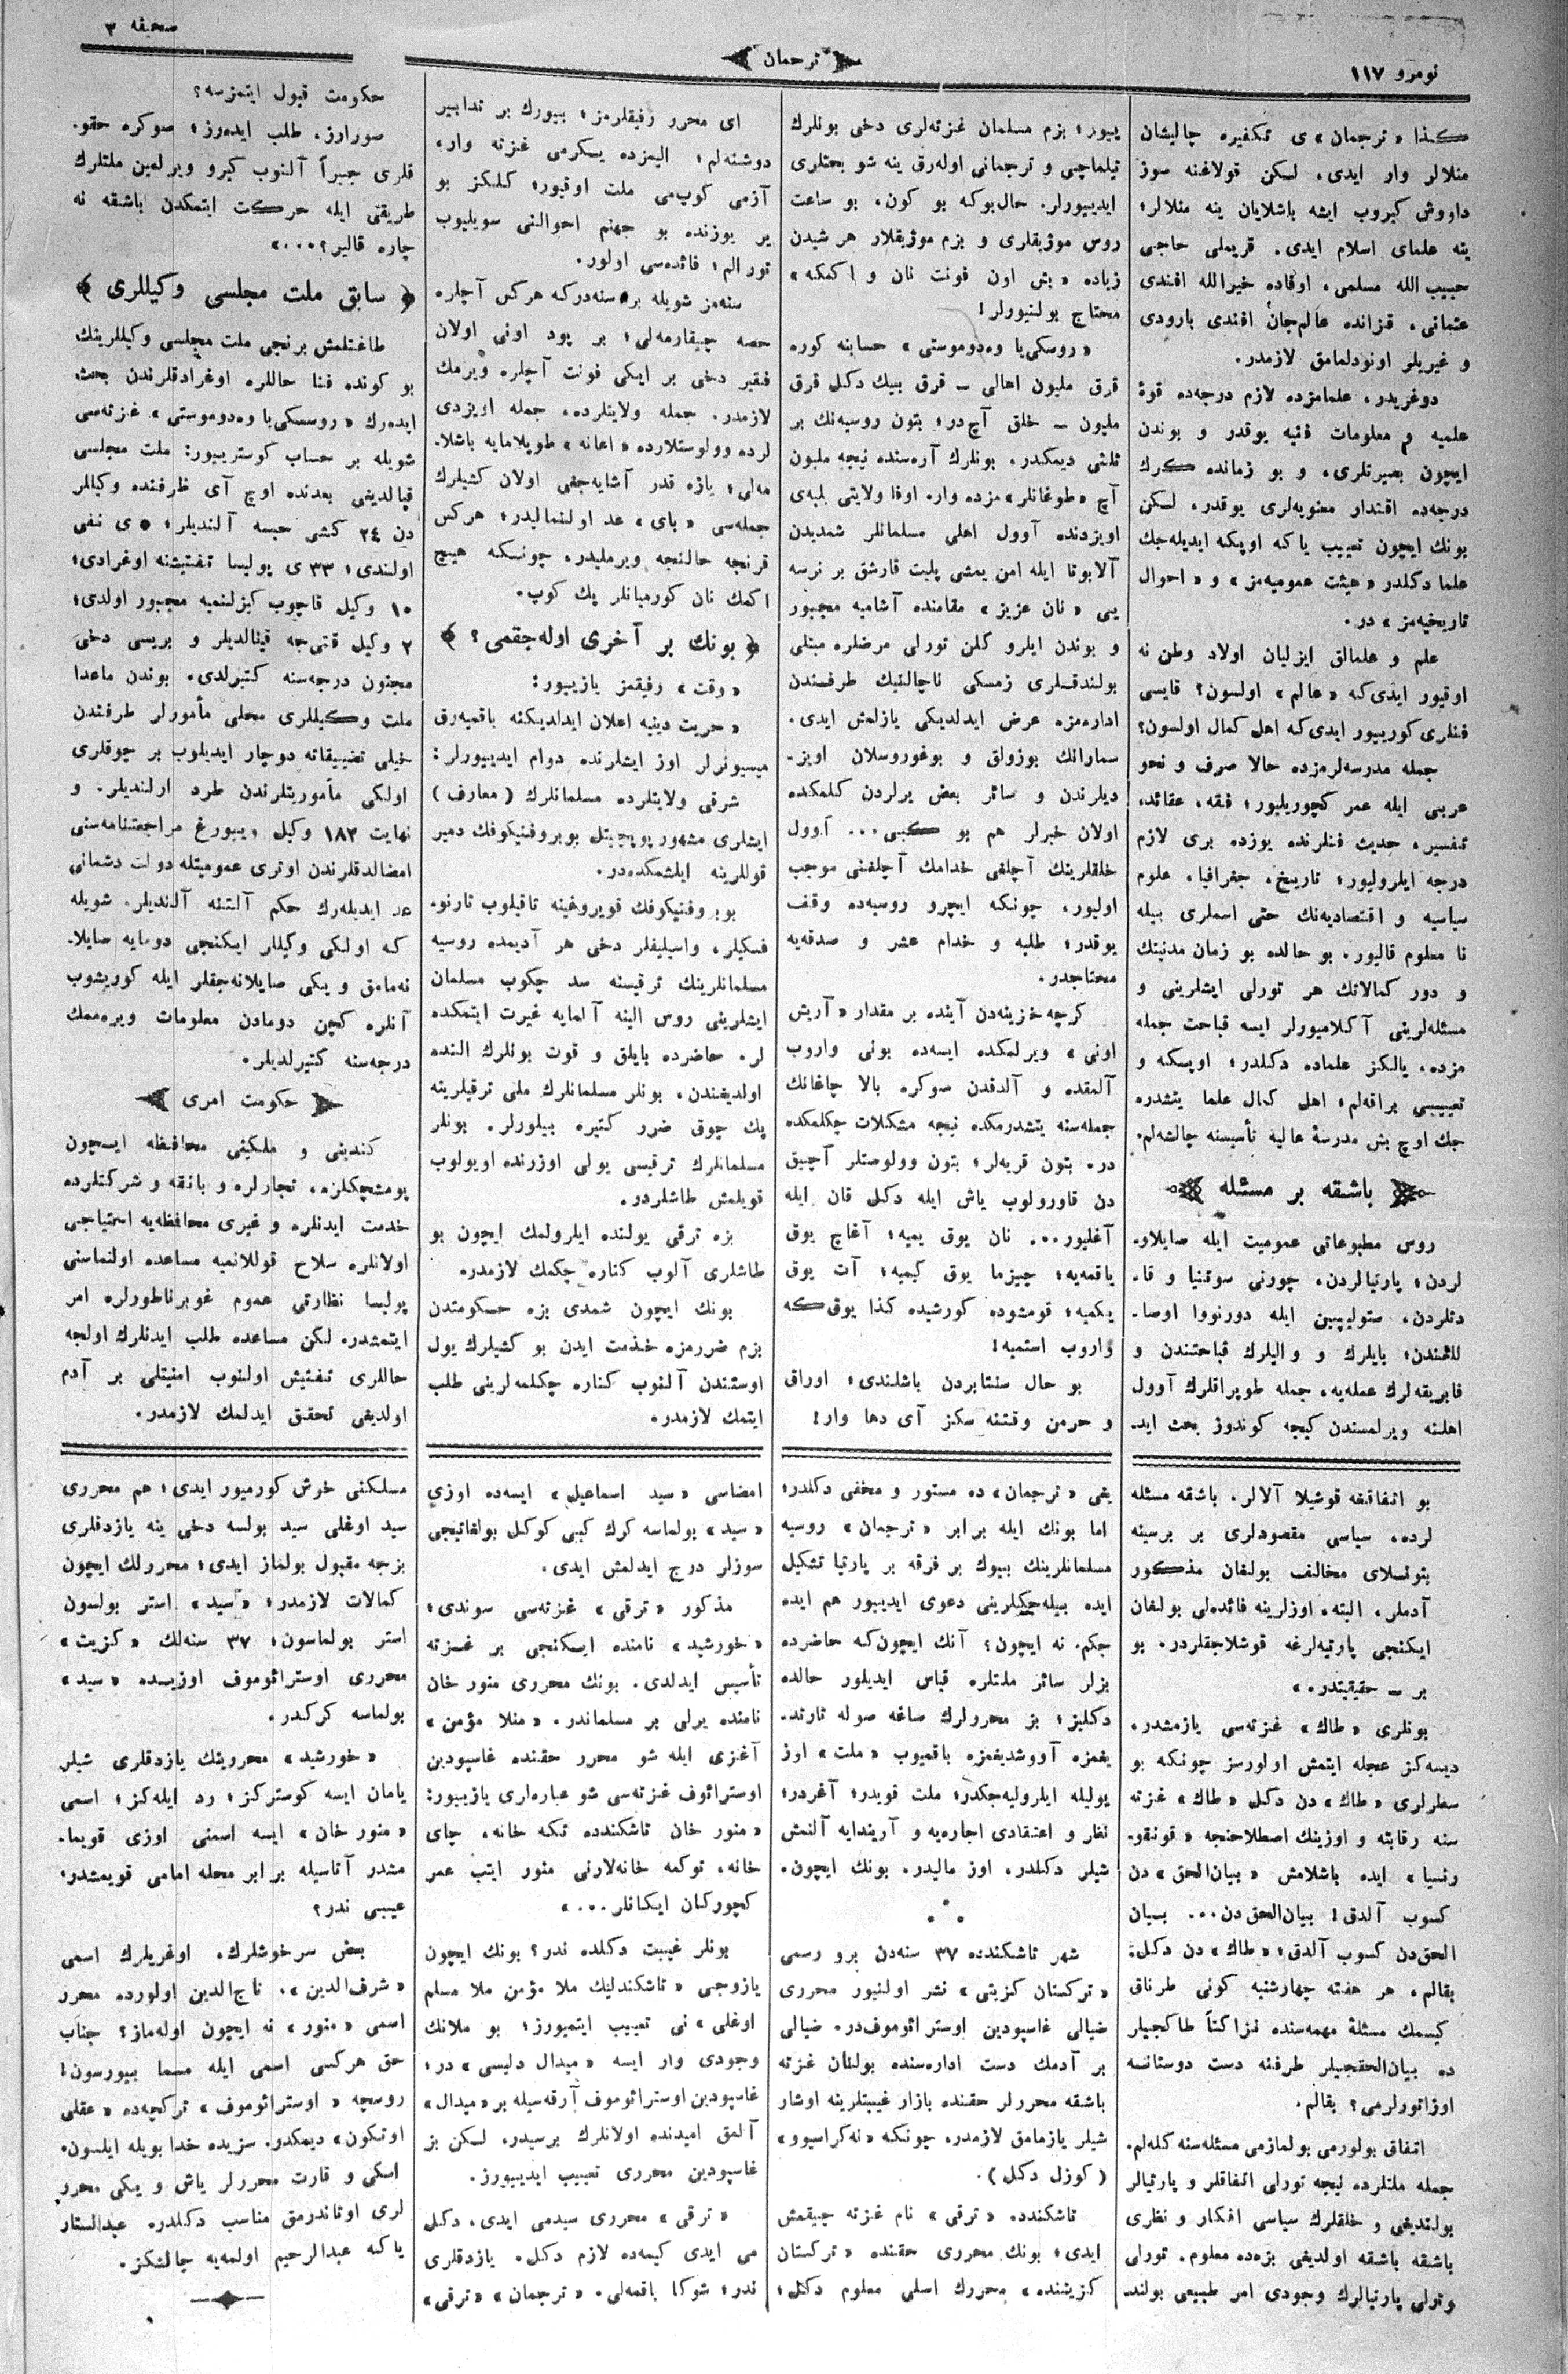 نومرو ١١٧
ترجمان
صحیفه ٢
كذا «ترجمان»ی تكفیره چالیشان
منلالر وار ایدی، لكن قولاغنه سوز
داووش كیروب ایشه باشلایان ینه منلالر؛
ینه علمای اسلام ایدی. قریملی حاجی
حبیب الله مسلمی، اوفاده خیرالله افندی
عثمانی، قزانده عالم‌جان افندی بارودی
و غیریلر اونودلمامق لازمدر.
دوغریدر، علمامزده لازم درجه‌ده قوهٔ
علمیه و معلومات فنیه یوقدر و بوندن
ایچون بصیرتلری، و بو زمانده كرك
درجه‌ده اقتدار معنویه‌لری یوقدر، لكن
بونك ایچون تعییب یا كه اوپكه ایدیله‌جك
علما دكلدر «هیئت عمومیه‌مز» و «احوال
تاریخیه‌مز» در.
علم و علمالق ایزلیان اولاد وطن نه
اوقیور ایدی كه «عالم» اولسون؟ قایسی
فنلری كوریییور ایدی كه اهل كمال اولسون؟
جمله مدرسه‌لرمزده حالا صرف و نحو
عربی ایله عمر كچوریلیور؛ فقه، عقائد،
تفسیر، حدیث فنلرنده یوزده بری لازم
درجه ایلرولیور؛ تاریخ، جغرافیا، علوم
سیاسیه و اقتصادیه‌نك حتی اسملری بیله
نا معلوم قالیور. بو حالده بو زمان مدنیتك
و دور كمالاتك هر تورلی ایشلرینی و
مسئله‌لرینی آكلامیورلر ایسه قباحت جمله
مزده، یالكز علماده دكلدر؛ اوپكه و
تعییبی براقه‌لم؛ اهل كمال علما یتشدره
جك اوچ بش مدرسهٔ عالیه تأسیسنه چالشه‌لم.
باشقه بر مسئله
روس مطبوعاتی عمومیت ایله صایلاو-
لردن؛ پارتیالردن، چورنی سوتنیا و قا-
دتلردن، ستولیپین ایله دورنووا اوصا-
للغندن؛ بایلرك و والیلرك قباحتندن و
فابریقه‌لرك عمله‌یه، جمله طوپراقلرك آوول
اهلنه ویرلمسندن كیجه كوندوز بحث اید-
ییور؛ بزم مسلمان غزته‌لری دخی بونلرك
تیلماچی و ترجمانی اوله‌رق ینه شو بحثلری
ایدییورلر. حال‌بوكه بو كون، بو ساعت
روس موژیقلری و بزم موژیقلار هر شیدن
زیاده «بش اون فونت نان و اكمكه»
محتاج بولنیورلر!
«روسكی‌یا وه‌دوموستی» حسابنه كوره
قرق ملیون اهالی – قرق بیك دكل قرق
ملیون – خلق آچ‌در؛ بتون روسیه‌نك بر
ثلثی دیمكدر، بونلرك آره‌سنده نیجه ملیون
آچ «طوغانلر»مزده وار. اوفا ولایتی بلبه‌ی
اویزدنده آوول اهلی مسلمانلر شمدیدن
آلابوتا ایله امن یمشی پلیت قارشق بر نرسه
یی «نان عزیز» مقامنده آشامیه مجبور
و بوندن ایلرو كلن تورلی مرضلره مبتلی
بولندقلری زمسكی ناچالنیك طرفندن
اداره‌مزه عرض ایدلدیكی یازلمش ایدی.
سمارانك بوزولق و بوغوروسلان اویز-
دیلرندن و سائر بعض یرلردن كلمكده
اولان خبرلر هم بو كبی... آوول
خلقلرینك آچلغی خدامك آچلغنی موجب
اولیور، چونكه ایچرو روسیه‌ده وقف
یوقدر؛ طلبه و خدام عشر و صدقه‌یه
محتاجدر.
كرچه خزینه‌دن آینده بر مقدار «آریش
اونی» ویرلمكده ایسه‌ده بونی واروب
آلمقده و آلدقدن صوكره بالا چاغانك
جمله‌سنه یتشدرمكده نیجه مشكلات چكلمكده
در. بتون قریه‌لر؛ بتون وولوصتلر آچیق
دن قاورولوب یاش ایله دكل قان ایله
آغلیور... نان یوق یمیه؛ آغاچ یوق
یاقمه‌یه؛ چیزما یوق كیمیه؛ آت یوق
یكمیه؛ قومشوده كورشیده كذا یوق كه
واروب استمیه!
بو حال سنتابردن باشلندی؛ اوراق
و حرمن وقتنه سكز آی دها وار!
ای محرر رفیقلرمز؛ بیورك بر تدابیر
دوشنه‌لم؛ الیمزده یكرمی غزته وار،
آزمی كوپ‌می ملت اوقیور؛ كلكز بو
یر یوزنده بو جهنم احوالنی سویلیوب
تورالم؛ فائده‌سی اولور.
سنه‌مز شویله بر سنه‌دركه هركس آچلره
حصه چیقارمه‌لی؛ بر پود اونی اولان
فقیر دخی بر ایكی فونت آچلره ویرمك
لازمدر. جمله ولایتلرده، جمله اویزدی
لرده وولوستلارده «اعانه» طوپلامایه باشلا-
مه‌لی؛ یازه قدر آشایه‌جغی اولان كشیلرك
جمله‌سی «بای» عد اولنمالیدر؛ هركس
قرنجه حالنجه ویرملیدر، چونكه هیچ
اكمك نان كورمیانلر پك كوپ.
بونك بر آخری اوله‌جقمی؟
«وقت» رفیقمز یازییور:
«حریت دینیه اعلان ایدلدیكنه باقمیه‌رق
میسیونرلر اوز ایشلرنده دوام ایدییورلر:
شرقی ولایتلرده مسلمانلرك (معارف)
ایشلری مشهور پوپچیتل بوبروفنیكوفك دمیر
قوللرینه ایلشمكده‌در.
بوبروفنیكوفك قویروغینه تاقیلوب تارنو-
فسكیلر، واسیلیفلر دخی هر آدیمده روسیه
مسلمانلرینك ترقیسنه سد چكوب مسلمان
ایشلرینی روس الینه آلمایه غیرت ایتمكده
لر. حاضرده بایلق و قوت بونلرك النده
اولدیغندن، بونلر مسلمانلرك ملی ترقیلرینه
پك چوق ضرر كتیره بیلورلر. بونلر
مسلمانلرك ترقیسی یولی اوزرنده اویولوب
قویلمش طاشلردر.
بزه ترقی یولنده ایلرولمك ایچون بو
طاشلری آلوب كناره چكمك لازمدر.
بونك ایچون شمدی بزه حكومتدن
بزم ضررمزه خذمت ایدن بو كشیلرك یول
اوستندن آلنوب كناره چكلمه‌لرینی طلب
ایتمك لازمدر.
حكومت قبول ایتمزسه؟
صورارز، طلب ایده‌رز؛ صوكره حقو.
قلری جبراً آلنوب كیرو ویرلمین ملتلرك
طریقی ایله حركت ایتمكدن باشقه نه
چاره قالیر؟...»
سابق ملت مجلسی وكیللری
طاغتلمش برنجی ملت مجلسی وكیللرینك
بو كونده فنا حاللره اوغرادقلرندن بحث
ایده‌رك «روسسكی‌یا وه‌دوموستی» غزته‌سی
شویله بر حساب كوسترییور: ملت مجلسی
قپالدیغی بعدنده اوچ آی ظرفنده وكیللر
دن ٢٤ كشی حبسه آلندیلر؛ ٥ی نفی
اولندی؛ ٣٣ی پولیسا تفتیشنه اوغرادی؛
١٠ وكیل قاچوب كیزلنمیه مجبور اولدی؛
٢ وكیل قتی‌جه قینالدیلر و بریسی دخی
مجنون درجه‌سنه كتیرلدی. بوندن ماعدا
ملت وكیللری محلی مأمورلر طرفندن
خیلی تضییقاته دوچار ایدیلوب بر چوقلری
اولكی مأموریتلرندن طرد اولندیلر. و
نهایت ١٨٢ وكیل ویبورغ مراجعتنامه‌سنی
امضالدقلرندن اوتری عمومیتله دولت دشمانی
عد ایدیله‌رك حكم آلتنه آلندیلر. شویله
كه اولكی وكیللر ایكنجی دومایه صایلا-
نه‌مامق و یكی صایلانه‌جقلر ایله كوریشوب
آنلره كچن دومادن معلومات ویره‌ممك
درجه‌سنه كتیرلدیلر.
حكومت امری
كندینی و ملكیفی محافظه ایچون
یومشچكلزه، تجارلره و بانقه و شركتلرده
خدمت ایدنلره و غیری محافظه‌یه احتیاجی
اولانلره سلاح قوللانمیه مساعده اولنماسنی
پولیسا نظارتی عموم غوبرناطورلره امر
ایتمشدر. لكن مساعده طلب ایدنلرك اولجه
حاللری تفتیش اولنوب امنیتلی بر آدم
اولدیغی تحقق ایدلمك لازمدر.
بو اتفاقغه قوشیلا آلالر. باشقه مسئله
لرده، سیاسی مقصودلری بر برسینه
بتونلای مخالف بولغان مذكور
آدملر، البته، اوزلرینه فائده‌لی بولغان
ایكنجی پارتیه‌لرغه قوشلاجقلردر. بو
بر – حقیقیتدر.»
بونلری «طاك» غزته‌سی یازمشدر،
دیسه‌كز عجله ایتمش اولورسز چونكه بو
سطرلری «طاك» دن دكل «طاك» غزته
سنه رقابته و اوزینك اصطلاحنجه «قونقو-
رنسیا» ایده باشلامش «بیان‌الحق» دن
كسوب آلدق! بیان‌الحق‌دن... بیان
الحق‌دن كسوب آلدق؛ «طاك» دن دكل.
بقالم، هر هفته چهارشنبه كونی طرناق
كیسمك مسئلهٔ مهمه‌سنده نزاكتاً طاكجیلر
ده بیان‌الحقجیلر طرفنه دست دوستانه
اوزاتورلرمی؟ بقالم.
اتفاق بولورمی بولمازمی مسئله‌سنه كله‌لم.
جمله ملتلرده نیجه تورلی اتفاقلر و پارتیالر
بولندیغی و خلقلرك سیاسی افكار و نظری
باشقه باشقه اولدیغی بزه‌ده معلوم. تورلی
وترلی پارتیالرك وجودی امر طبیعی بولند-
یغی «ترجمان»ده مستور و مخفی دكلدر؛
اما بونك ایله برابر «ترجمان» روسیه
مسلمانلرینك بیوك بر فرقه بر پارتیا تشكیل
ایده بیله‌جكلرینی دعوی ایدییور هم ایده
جكم. نه ایچون؟ آنك ایچون‌كه حاضرده
بزلر سائر ملتلره قیاس ایدیلور حالده
دكلیز؛ بز محررلرك صاغه صوله تارتد-
یغمزه آووشدیغمزه باقمیوب «ملت» اوز
یولیله ایلرولیه‌جكدر؛ ملت قویدر؛ آغردر؛
نظر و اعتقادی اجاره‌یه و آریندایه آلنمش
شیلر دكلدر، اوز مالیدر. بونك ایچون.
شهر تاشكندده ٣٧ سنه‌دن برو رسمی
«تركستان كزیتی» نشر اولنیور محرری
ضیالی غاسپودین اوستراٹوموف‌در. ضیالی
بر آدمك دست اداره‌سنده بولنان غزته
باشقه محررلر حقنده بازار غیبتلرینه اوشار
شیلر یازمامق لازمدر، چونكه «نه‌كراسیوو»
(كوزل دكل).
تاشكندده «ترقی» نام غزته چیقمش
ایدی؛ بونك محرری حقنده «تركستان
كزیتنده» محررك اصلی معلوم دكل؛
امضاسی «سید اسماعیل» ایسه‌ده اوزی
«سید» بولماسه كرك كبی كوكل بولغاتیجی
سوزلر درج ایدلمش ایدی.
مذكور «ترقی» غزته‌سی سوندی؛
«خورشید» نامنده ایكنجی بر غزته
تأسیس ایدلدی. بونك محرری منور خان
نامنده یرلی بر مسلماندر. «منلا مؤمن»
آغزی ایله شو محرر حقنده غاسپودین
اوستراٹوف غزته‌سی شو عباره‌لری یازییور:
«منور خان تاشكندده تكه خانه، چای
خانه، توكمه خانه‌لارنی منور ایتب عمر
كچوركان ایكانلر...»
بونلر غیبت دكلده ندر؟ بونك ایچون
یازوجی «تاشكندلیك ملا مؤمن ملا مسلم
اوغلی» نی تعییب ایتمیورز؛ بو ملانك
وجودی وار ایسه «میدال دلیسی» در؛
غاسپودین اوستراٹوموف آرقه‌سیله بر «میدال»
آلمق امیدنده اولانلرك برسیدر، لكن بز
غاسپودین محرری تعییب ایدییورز.
«ترقی» محرری سیدمی ایدی، دكل
می ایدی كیمه‌ده لازم دكل. یازدقلری
ندر؛ شوكا باقمه‌لی. «ترجمان» «ترقی»
مسلكنی خرش كورمیور ایدی؛ هم محرری
سید اوغلی سید بولسه دخی ینه یازدقلری
بزجه مقبول بولماز ایدی؛ محررلك ایچون
كمالات لازمدر؛ «سید» استر بولسون
استر بولماسون؛ ٣٧ سنه‌لك «كزیت»
محرری اوستراٹوموف اوزیسده «سید»
بولماسه كركدر.
«خورشید» محررینك یازدقلری شیلر
یامان ایسه كوستركز؛ رد ایله‌كز؛ اسمی
«منور خان» ایسه اسمنی اوزی قویما-
مشدر آتاسیله برابر محله امامی قویمشدر.
عیبی ندر؟
بعض سرخوشلرك، اوغریلرك اسمی
«شرف‌الدین»، تاج‌الدین اولورده محرر
اسمی «منور» نه ایچون اوله‌ماز؟ جناب
حق هركسی اسمی ایله مسما بیورسون!
روسچه «اوستراٹوموف» تركچه‌ده «عقلی
اوتكون» دیمكدر. سزیده خدا بویله ایلسون.
اسكی و قارت محررلر یاش و یكی محرر
لری اوتاندرمق مناسب دكلدر. عبدالستار
یا كه عبدالرحیم اولمه‌یه چالشكز.